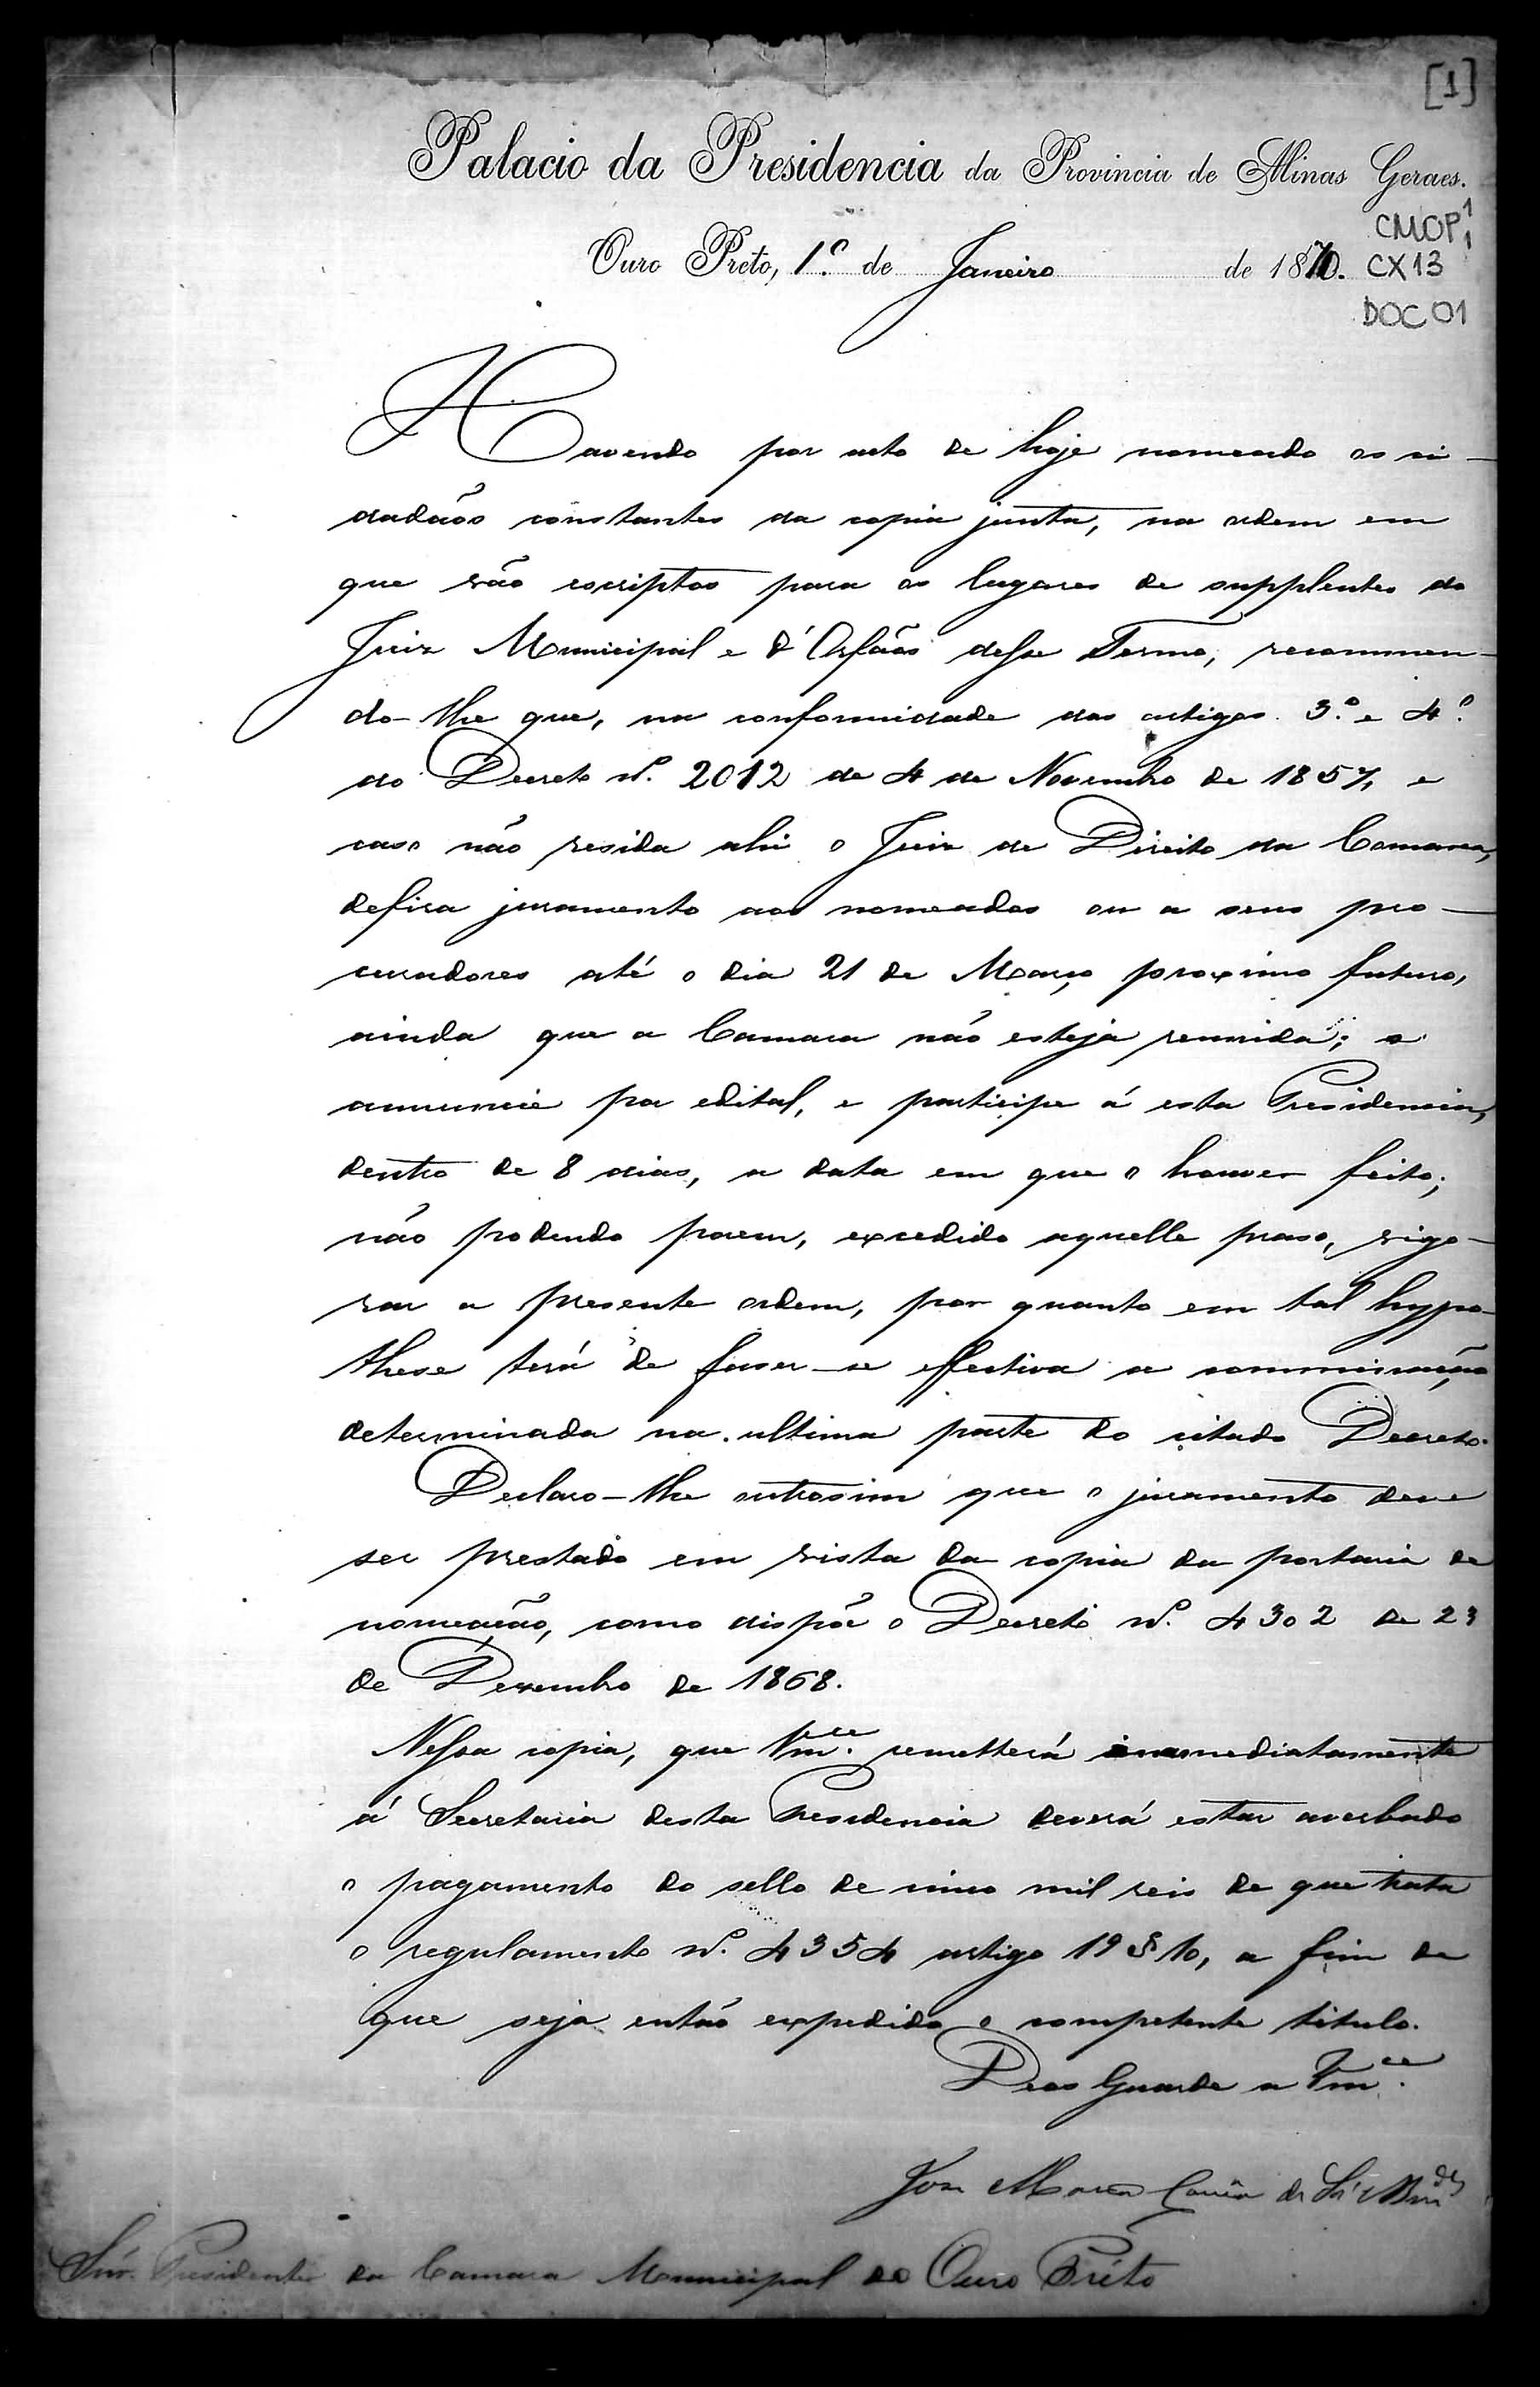 [1]
Palacio da Presidencia da Provincia de Minas Geraes.
CMOP 1/1
Ouro Preto, 1º. de Janeiro de 1870. CX13
DOC 01
Havendo por acto de hoje nomeado os ci-
dadãos constantes da copia junta, na ordem em
que são escriptos para os lugares de supplentes do
Juiz Municipal e d'Orfãos desse Termo, recommen-
do-lhe que, na conformidade dos artigos 3.º e 4.º
do Decreto nº. 2012 de 4 de Novembro de 1857, e
caso não resida ahi o Juiz de Direito da Comarca,
defira juramento aos nomeados ou a seus pro-
curadores até o dia 21 de Março proximo futuro,
ainda que a Camara não esteja reunida; o
annuncie por edital, e participe á esta Presidencia,
dentro de 8 dias, a data em que o houver feito;
não podendo porem, excedido aquelle praso, vigo-
rar a presente ordem, por quanto em tal hypo-
these terá de faser-se effectiva a comminação
determinada na ultima parte do citado Decreto.
Declaro-lhe outrosim que o juramento deve
ser prestado em vista da copia da portaria de
nomeação, como dispõe o Decreto nº. 4302 de 23
de Dezembro de 1868.
Nessa copia, que Vmce. remetterá immediatamente
á Secretaria desta Presidencia deverá estar averbado
o pagamento do sello de cinco mil reis de que trata
o regulamento nº. 4354 artigo 19 § 10, a fim de
que seja então expedido o competente titulo.
Deos Guarde a Vmce.
José Maria Corrêa de Sá e Bendes
Snr. Presidente da Camara Municipal de Ouro Prêto